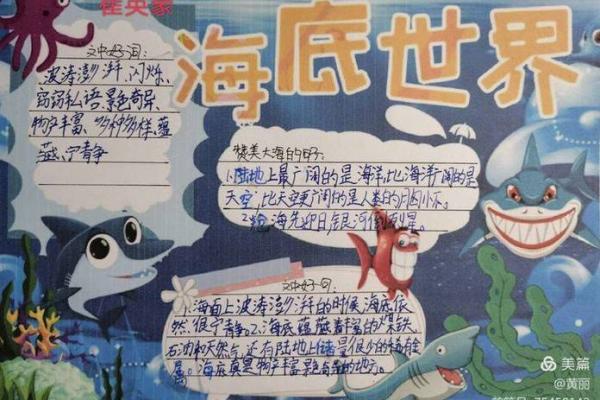 海底世界
文中好词:
波涛澎湃、闪烁、
窃窃私语、景色奇异、
物产丰富、多种多样、蕴
藏、宁静
赞美大海的句子:
1.陆地上最广阔的是海洋,比海洋广阔的是
天空,比天空更广阔的是人类的
2.沧海先迎日,银河倒列星。
文中好句:
1.海面上波涛澎湃的时候,海底依
然很宁静。2.海底蕴藏着丰富的煤、铁、
石油和天然气,还有陆地上储量很少的稀有金
属。海底真是物产丰富、景色奇异的地方。
美篇
@黄丽